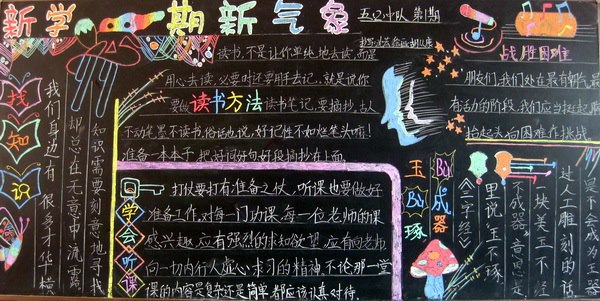 新学期新气象
五(2)小队 第1期
读书,不是让你单纯地去读,而是
用心去读,必要时还要用手去记。就是说你
要做读书方法读书笔记,要摘抄,古人
不动笔墨不读书,俗话也说,好记性不如烂笔头嘛!
准备一本本子,把好词好句好段摘抄在上面。
战胜困难
朋友们,我们处在最有朝气最
有活力的阶段,我们应当挺起胸
抬起头向困难在挑战
找知识
我们身边有很多才华横
却总在无意中流露
知识需要刻意地寻找
学会听课
打仗要打有准备之仗,听课也要做好
准备工作,对每一门功课,每一位老师的课
感兴趣,应有强烈的求知欲望,应有向老师
向一切内行人虚心求习的精神,不论那一堂
课的内容是复杂还是简单都应该认真对待.
玉不琢
不成器
《三字经》
里说,玉不琢,
不成器,意思是
一块美玉不经
过人工雕刻的话
是不会成为玉器